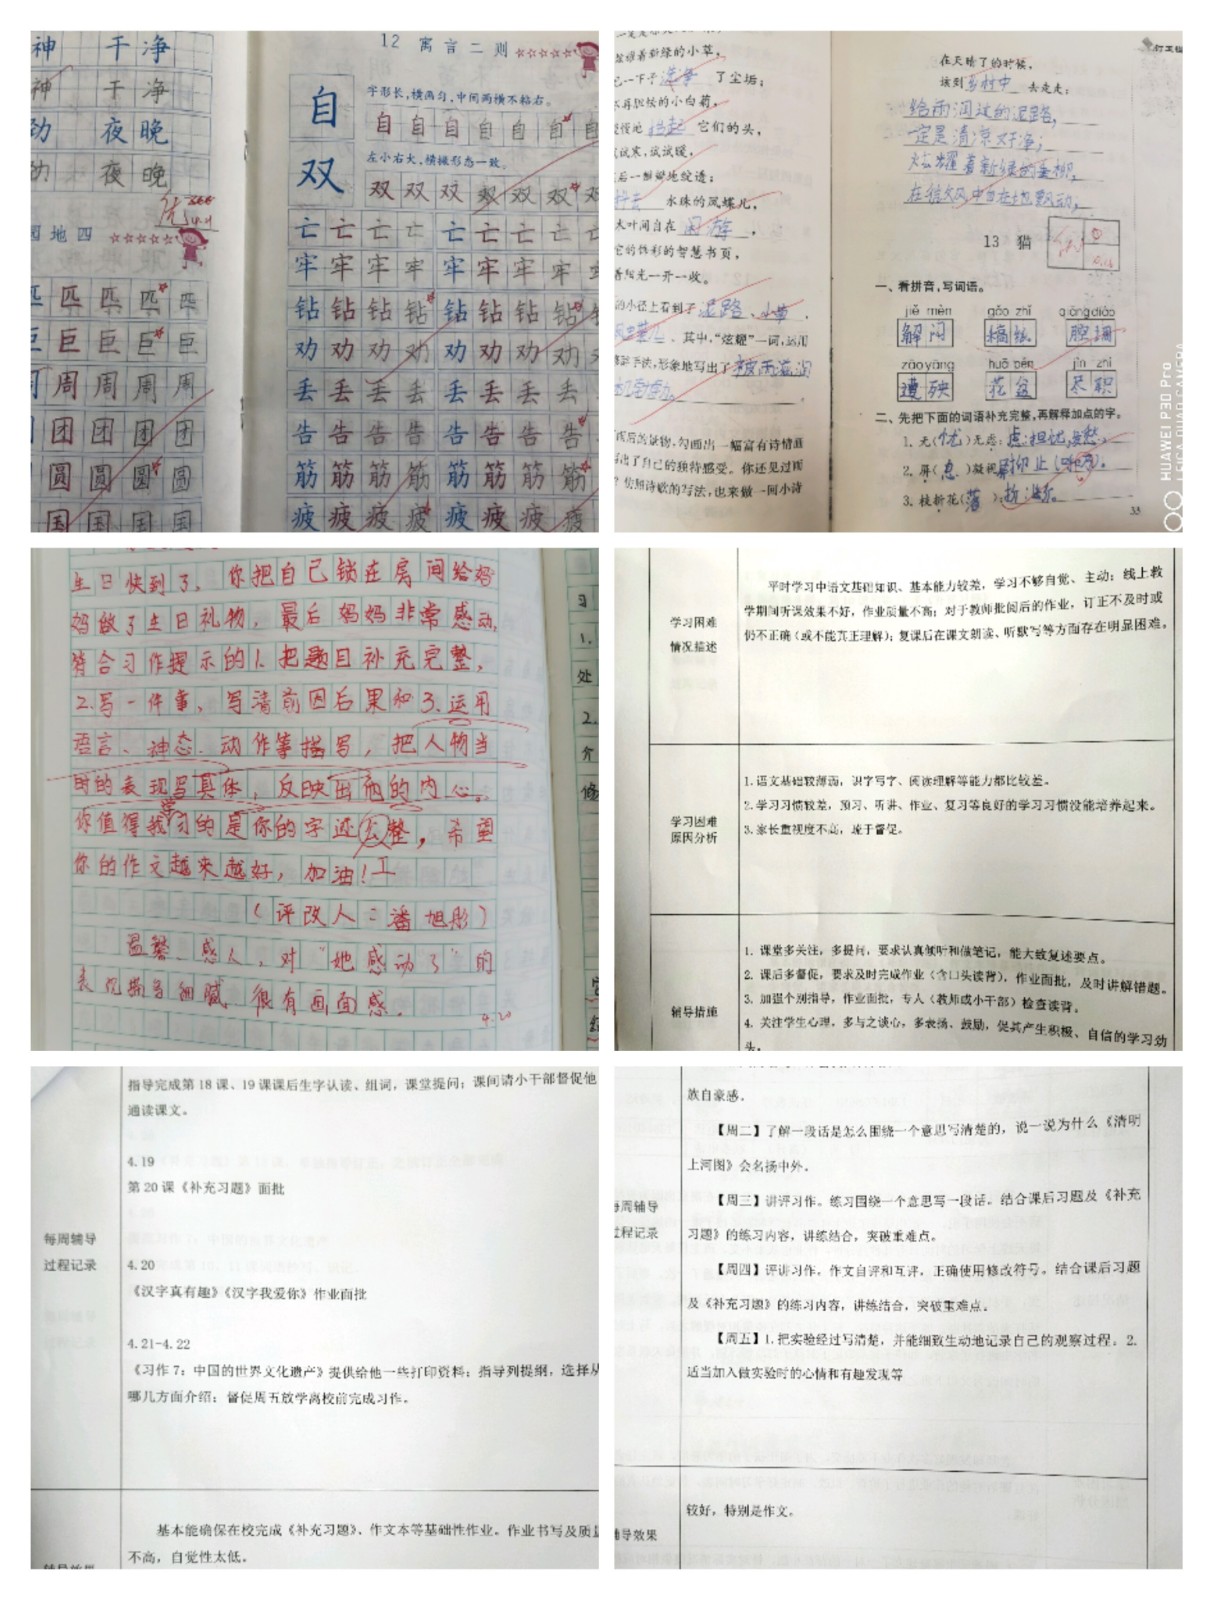 神 干净
神 干净
劲 夜晚
夜晚
优
园地四
匹匹匹匹
巨巨巨巨
周周周周
团团团团
圆圆圆圆
国国国国
12 寓言二则
自
字形长,横画匀,中间两横不粘右。
自自自自自自自
双
左小右大,横撇形态一致。
双双双双双双双
亡亡亡亡亡亡亡亡
牢牢牢牢牢牢牢牢
钻钻钻钻钻钻钻钻
劝劝劝劝劝劝劝劝
丢丢丢丢丢丢丢丢
告告告告告告告告
筋筋筋筋筋筋筋筋
疲疲疲疲疲疲疲疲
着新绿的小草,
一下子洗净了尘垢;
不再胆怯的小白菊,
慢地抬起它们的头,
试试寒,试试暖,
后一瓣瓣地绽透;
抖去水珠的凤蝶儿,
木叶间自在闲游,
它的饰彩的智慧书页,
着阳光一开一收。
的小径上看到了泥路、小草、
其中,“炫耀”一词,运用
手法,形象地写出了被雨滋润
雨后的读物,勾画出一幅富有诗情画
写出了自己的独特感受。你还见过雨
?仿照诗歌的写法,也来做一回小诗
在天晴了的时候,
该到乡村中去走走:
给雨润过的泥路,
一定是清凉又干净;
炫耀着新绿的垂柳,
在微风中自在地飘动,
13 猫
一、看拼音,写词语。
jiě mèn gǎo zhǐ qiāng diào
解闷 稿纸 腔调
zāo yāng huā pén jìn zhí
遭殃 花盆 尽职
二、先把下面的词语补充完整,再解释加点的字。
1. 无(忧)无虑:虑:担忧,发愁
2. 屏(息)凝视
3. 枝折花(落)
33
HUAWEI P30 Pro
LEICA QUAD CAMERA
生日快到了,你把自己锁在房间给妈
妈做了生日礼物,最后妈妈非常感动,
符合习作提示的1.把题目补充完整,
2.写一件事,写清前因后果和3.运用
语言、神态、动作等描写,把人物当
时的表现写具体,反映出他的内心。
你值得我学习的是你的字迹公整,希望
你的作文越来越好,加油!
(评改人:潘旭彤)
温馨、感人,对“她感动了”的
表现描写细腻,很有画面感。
4.20
学习困难
情况描述
平时学习中语文基础知识、基本能力较差,学习不够自觉、主动;线上教
学期间听课效果不好,作业质量不高;对于教师批阅后的作业,订正不及时或
仍不正确(或不能真正理解);复课后在课文朗读、听默写等方面存在明显困难。
学习困难
原因分析
1.语文基础较薄弱,识字写字、阅读理解等能力都比较差。
2.学习习惯较差,预习、听讲、作业、复习等良好的学习习惯没能培养起来。
3.家长重视度不高,疏于督促。
辅导措施
1. 课堂多关注,多提问,要求认真倾听和做笔记,能大致复述要点。
2. 课后多督促,要求及时完成作业(含口头读背),作业面批,及时讲解错题。
3. 加强个别指导,作业面批,专人(教师或小干部)检查读背。
4. 关注学生心理,多与之谈心,多表扬、鼓励,促其产生积极、自信的学习劲
头。
指导完成第18课、19课课后生字认读、组词,课堂提问;课间请小干部督促他
通读课文。
4.19
第20课《补充习题》面批
每周辅导
过程记录
4.20
《汉字真有趣》《汉字我爱你》作业面批
4.21-4.22
《习作7:中国的世界文化遗产》提供给他一些打印资料;指导列提纲,选择从
哪几方面介绍;督促周五放学离校前完成习作。
基本能确保在校完成《补充习题》、作文本等基础性作业。作业书写及质量
不高,自觉性太低。
族自豪感。
【周二】了解一段话是怎么围绕一个意思写清楚的,说一说为什么《清明
上河图》会名扬中外。
每周辅导
过程记录
【周三】讲评习作。练习围绕一个意思写一段话。结合课后习题及《补充
习题》的练习内容,讲练结合,突破重难点。
【周四】评讲习作,作文自评和互评,正确使用修改符号。结合课后习题
及《补充习题》的练习内容,讲练结合,突破重难点。
【周五】1.把实验经过写清楚,并能细致生动地记录自己的观察过程。2.
适当加入做实验时的心情和有趣发现等
较好,特别是作文。
辅导效果